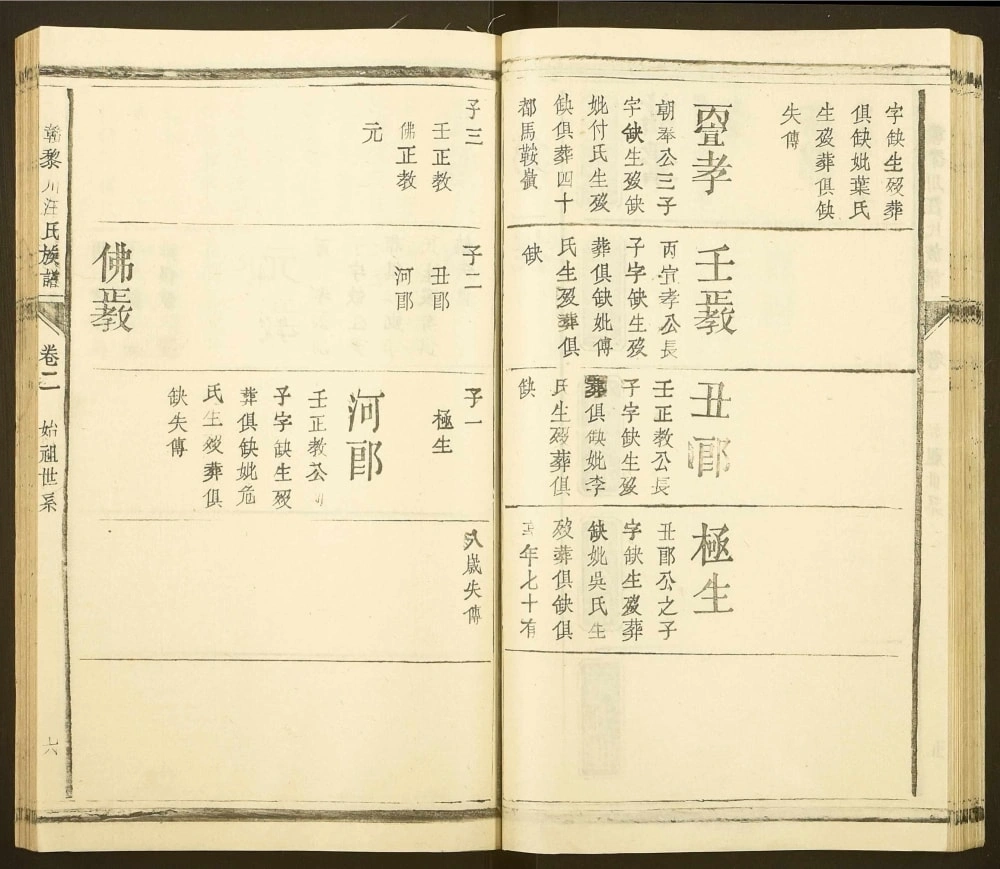 字缺生殁葬
俱缺妣葉氏
生殁葬俱缺
失傳
丙宜孝
朝奉公三子
字缺生殁缺
妣付氏生殁
缺俱葬四十
都馬鞍嶺
壬正教
丙宜孝公長
子字缺生殁
葬俱缺妣傅
氏生殁葬俱
缺
丑郎
壬正教公長
子字缺生殁
葬俱缺妣李
氏生殁葬俱
缺
極生
丑郎公之子
字缺生殁葬
缺妣吳氏生
殁葬俱缺俱
年七十有
子三
壬正教
佛正教
元
子二
丑郎
河郎
佛正教
子一
極生
河郎
壬正教公
子字缺生殁
葬俱缺妣危
氏生殁葬俱
缺失傳
八歲失傳
黎川汪氏族譜 卷二 始祖世系 六